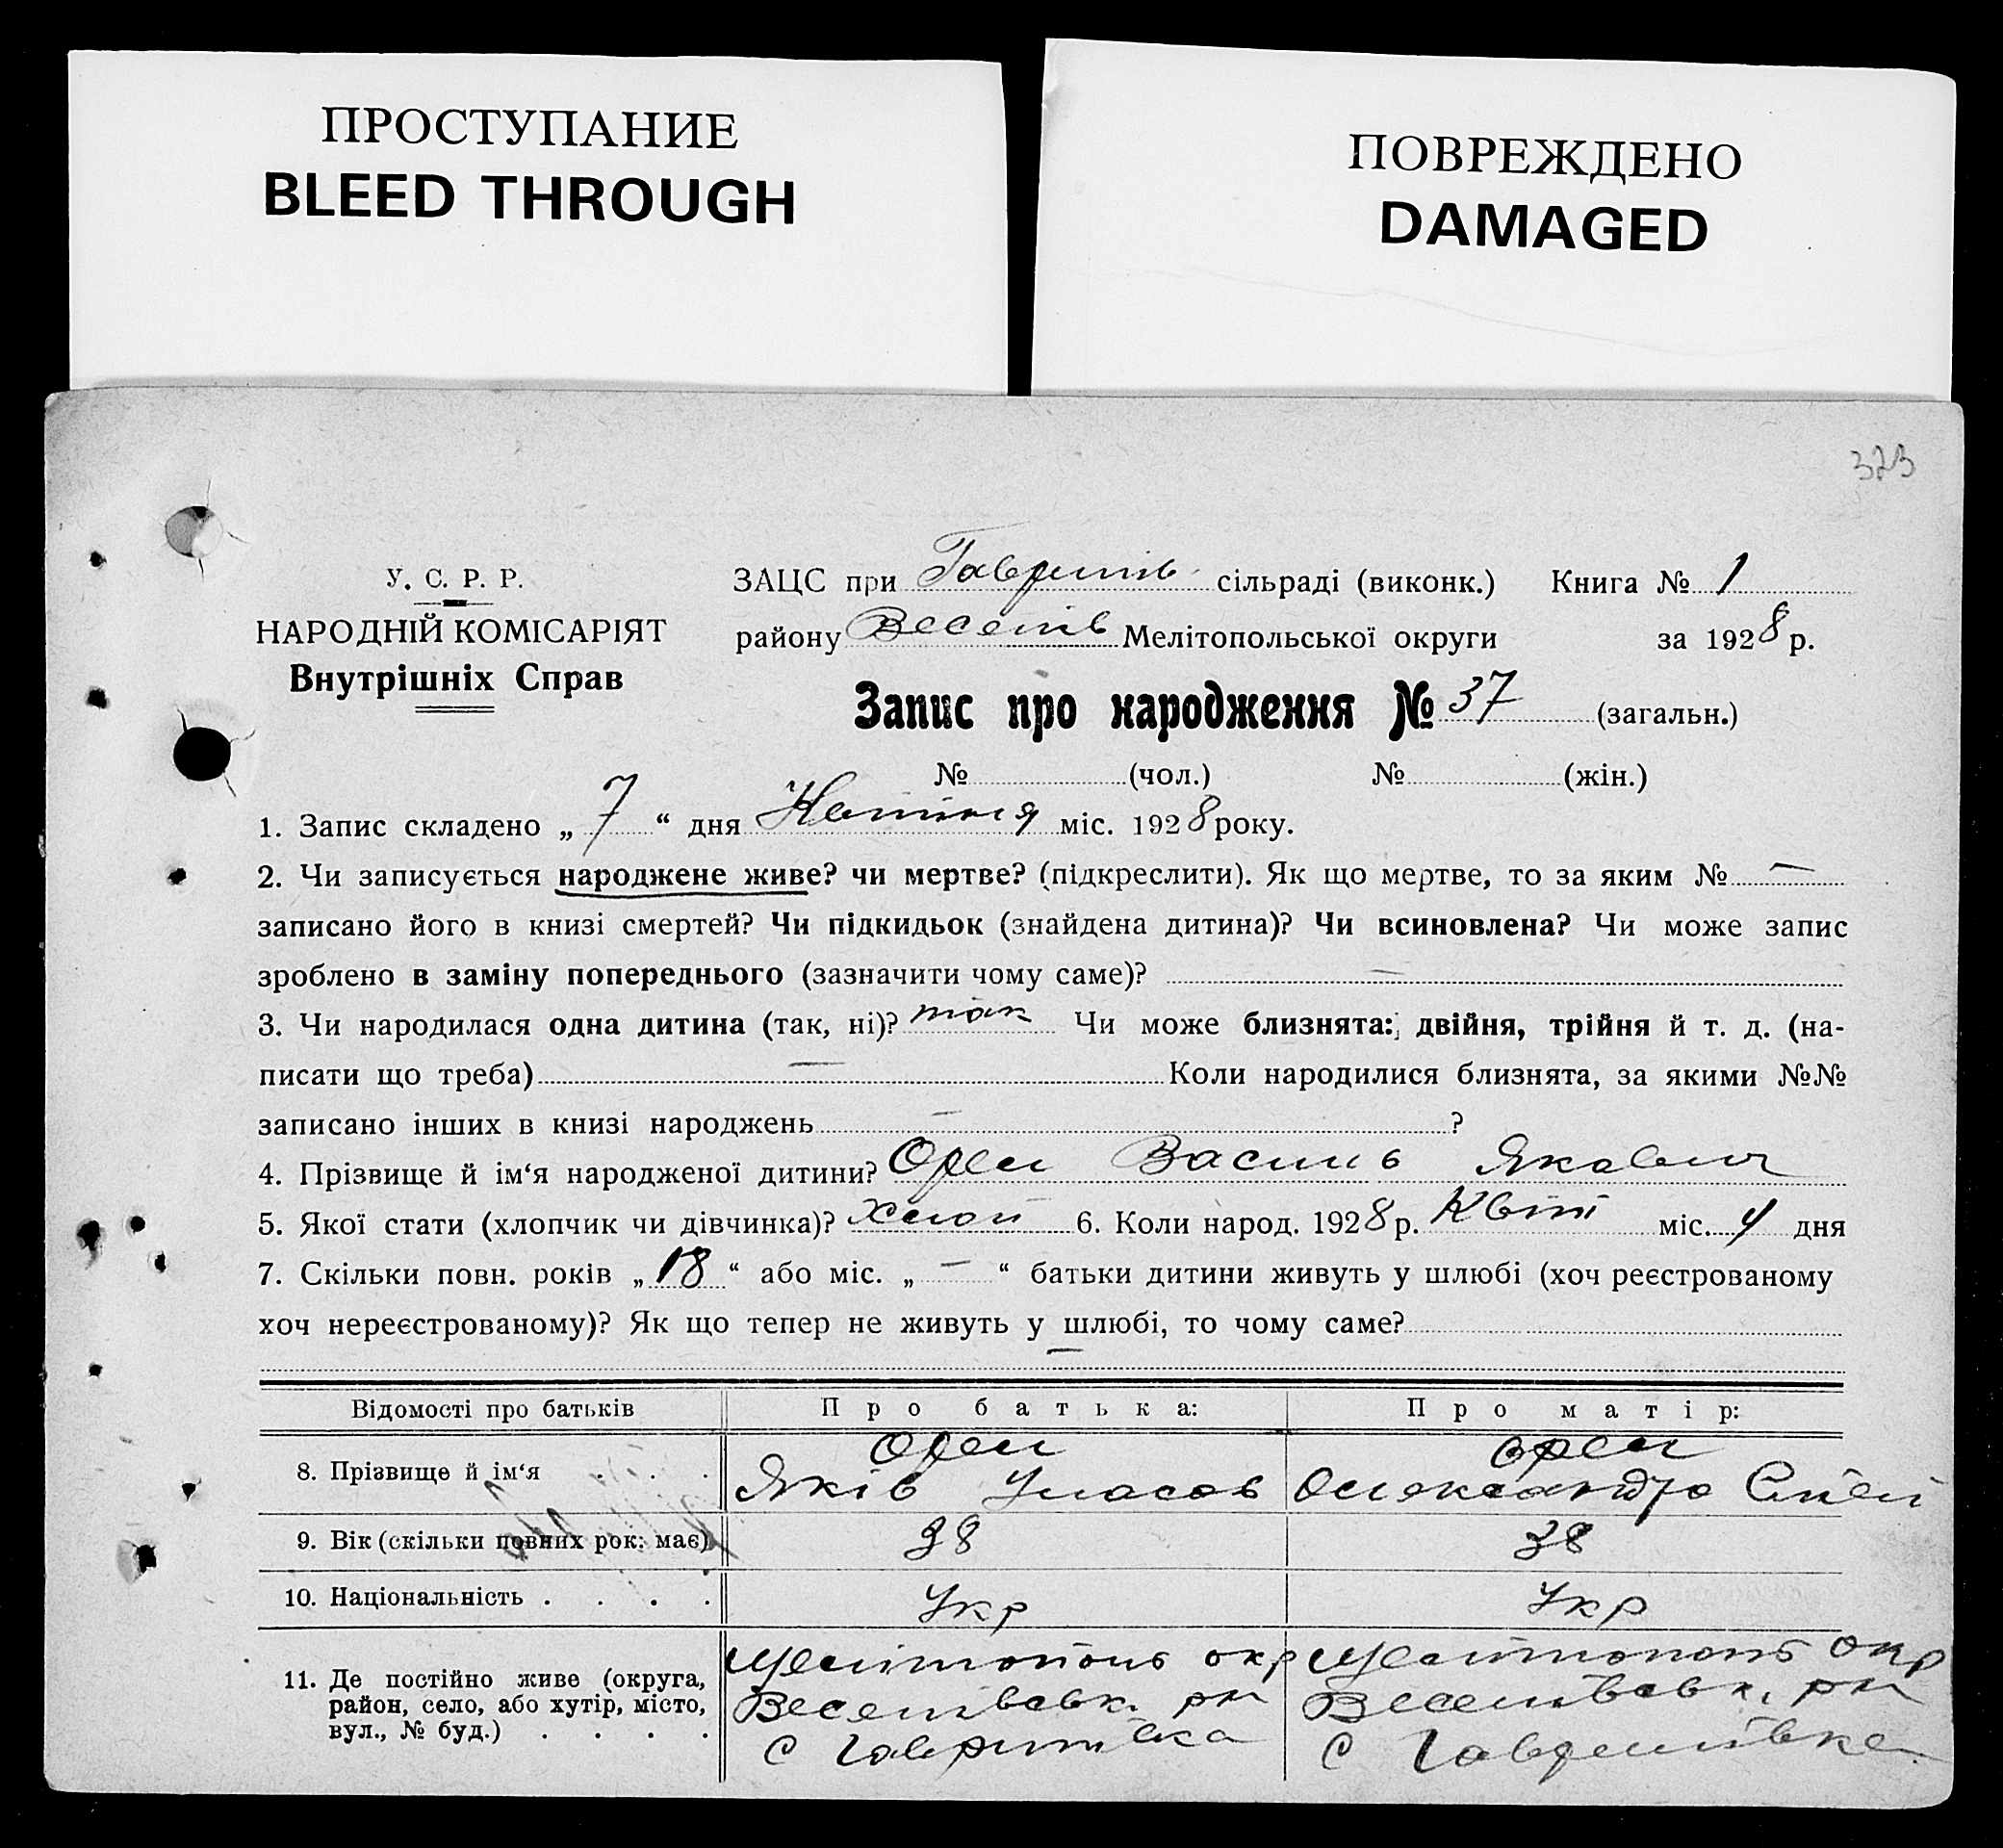 ПРОСТУПАНИЕ
BLEED THROUGH
ПОВРЕЖДЕНО
DAMAGED
323
У. С. Р. Р.
НАРОДНІЙ КОМІСАРІЯТ
Внутрішніх Справ
ЗАЦС при Гаврилів сільраді (виконк.) Книга № 1
району Веселів Мелітопольської округи за 1928 р.
Запис про народження № 37 (загальн.)
№ (чол.) № (жін.)
1. Запис складено „ 7 “ дня Квітня міс. 1928 року.
2. Чи записується народжене живе? чи мертве? (підкреслити). Як що мертве, то за яким № —
записано його в книзі смертей? Чи підкидьок (знайдена дитина)? Чи всиновлена? Чи може запис
зроблено в заміну попереднього (зазначити чому саме)? —
3. Чи народилася одна дитина (так, ні)? так Чи може близнята: двійня, трійня й т. д. (на-
писати що треба) — Коли народилися близнята, за якими №№
записано інших в книзі народжень — ?
4. Прізвище й ім‘я народженої дитини? Орел Василь Якович
5. Якої стати (хлопчик чи дівчинка)? Хлоп 6. Коли народ. 1928 р. Квіт міс. 4 дня
7. Скільки повн. років „ 18 “ або міс. „ — “ батьки дитини живуть у шлюбі (хоч реєстрованому
хоч нереєстрованому)? Як що тепер не живуть у шлюбі, то чому саме?
—
Відомості про батьків Про батька: Про матір:
8. Прізвище й ім‘я . . . Орел Яків Уласов Орел Олександра
9. Вік (скільки повних рок. має) 38 38
10. Національність . . . . Укр Укр
11. Де постійно живе (округа, Мелітополь окр Мелітополь окр
район, село, або хутір, місто, Веселівськ. рн Веселівськ. рн
вул., № буд.) . . . . С Гаврилівка С Гаврилівка